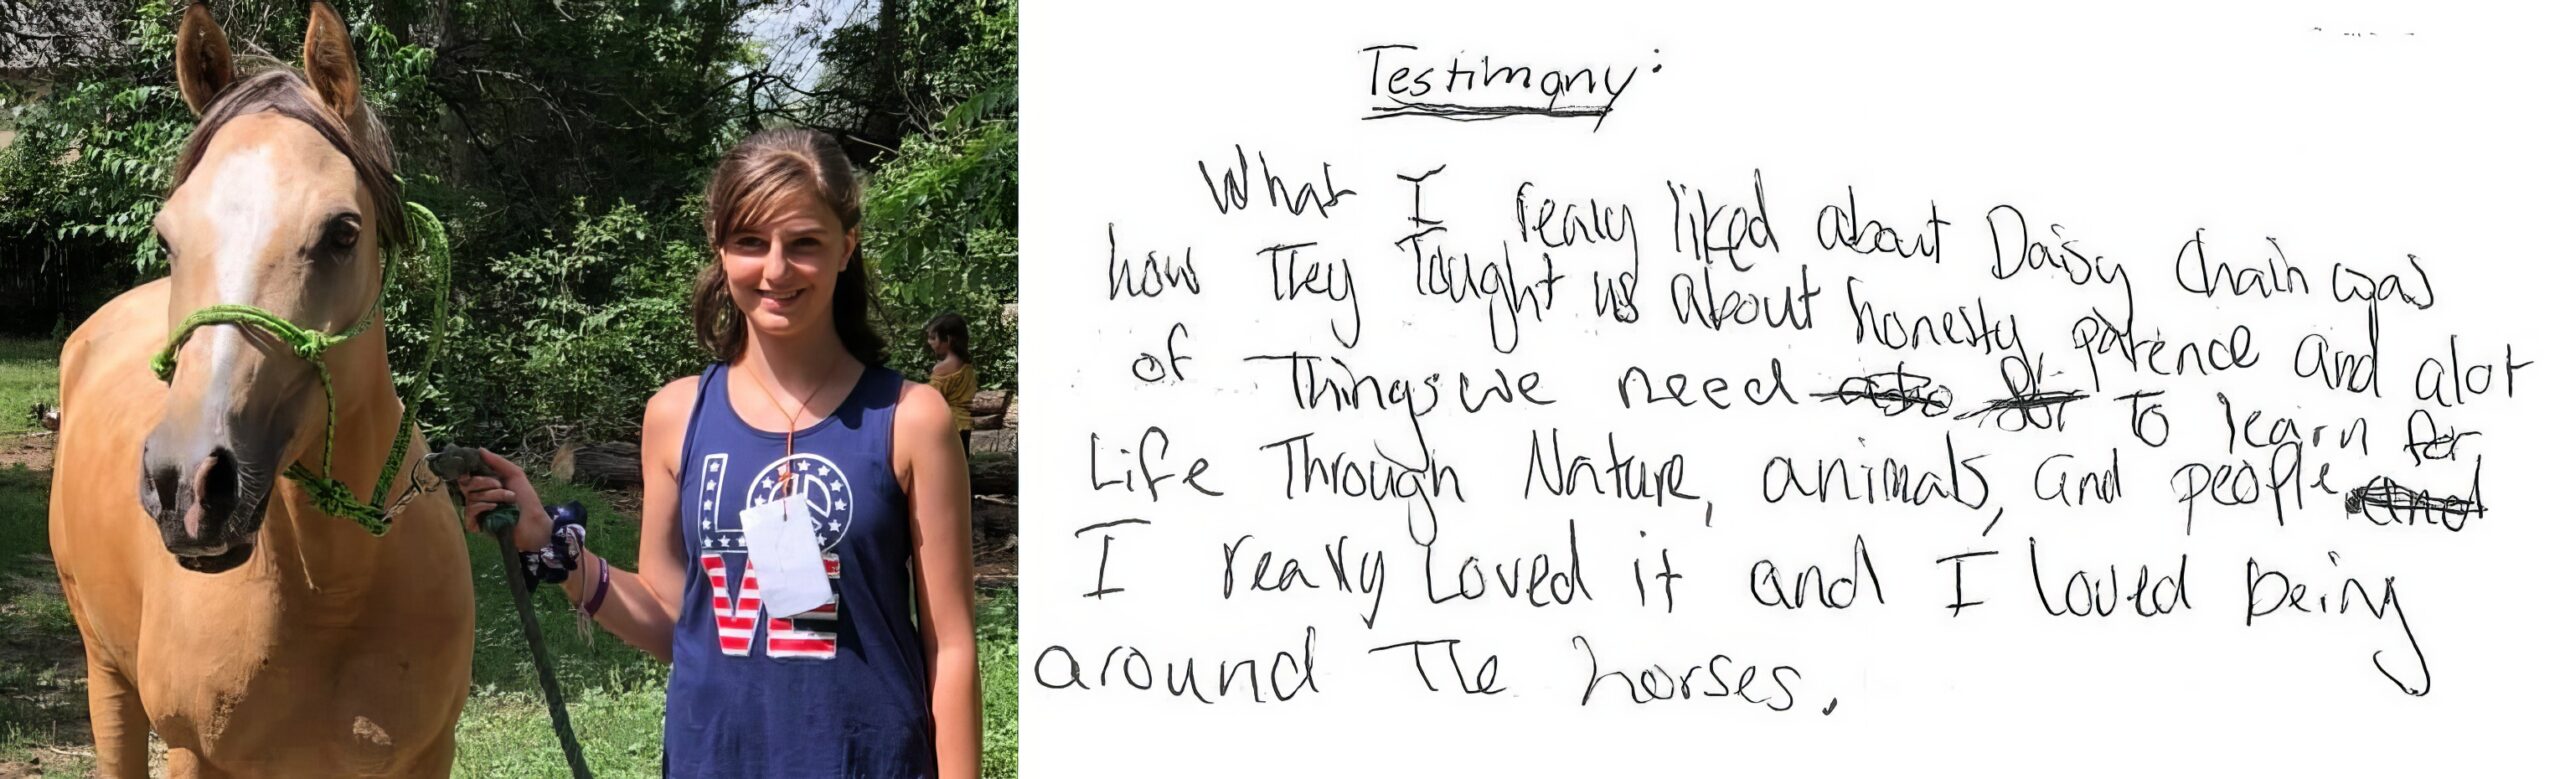 LOVE
Testimony:
What I realy liked about Daisy Chain was
how They Tought us about honesty patence and alot
of Things we need to learn for
Life Through Nature, animals, and people
I really Loved it and I loved being
around The horses.